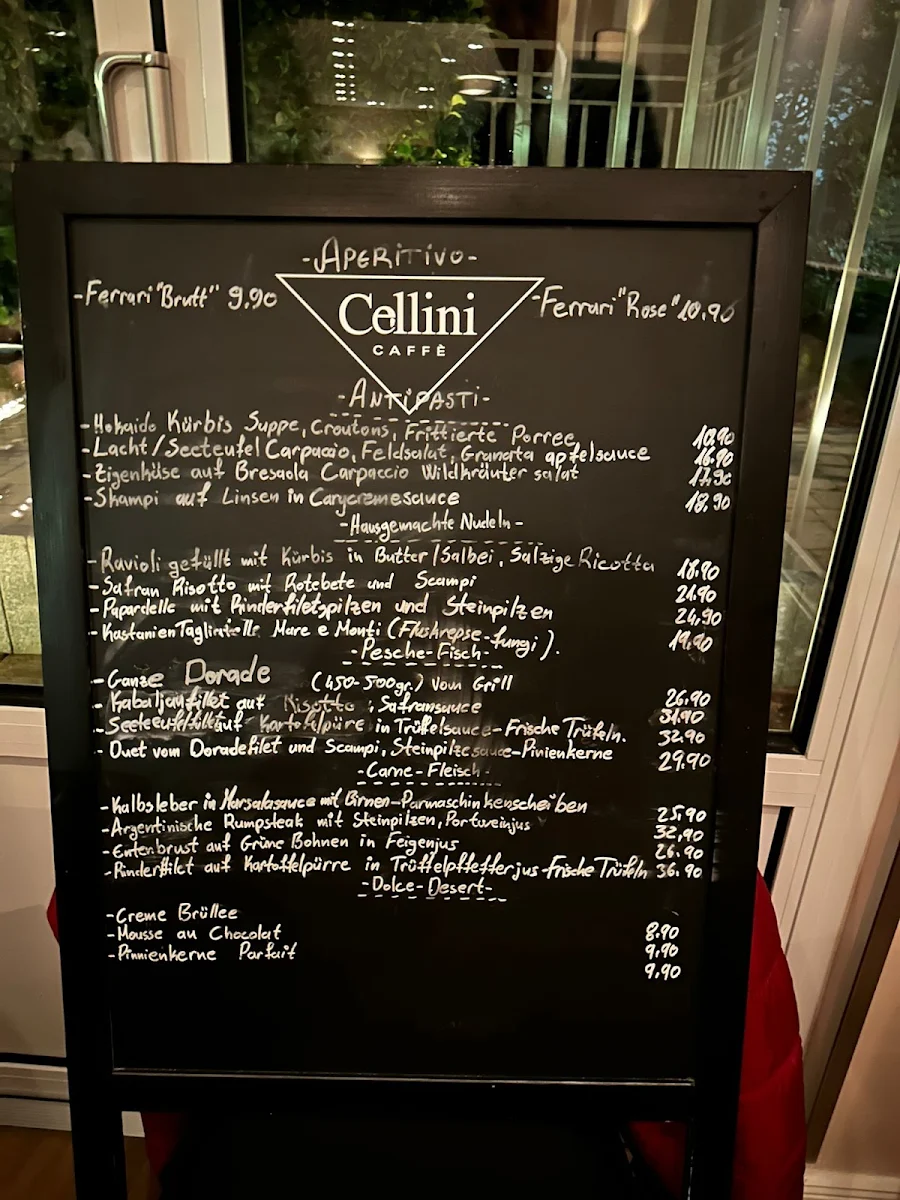 -APERiTiVO-
-Ferrari "Brutt" 9.90
Cellini
CAFFÈ
-Ferrari "Rose" 10,90
-ANTiPASTi-
-Hokaido Kürbis Suppe, Croutons, Frittierte Porree, 10,90
-Lacht/Seeteufel Carpaccio, Feldsalat, Granata apfelsauce 16.90
-Zigenkäse auf Bresaola Carpaccio Wildkräuter salat 17,90
-Skampi auf Linsen in Carycremesauce 18,90
-Hausgemachte Nudeln-
-Ravioli gefüllt mit Kürbis in Butter/Salbei, Salzige Ricotta 18.90
-Safran Risotto mit Rotebete und Scampi 21.90
-Papardelle mit Rinderfiletspilzen und Steinpilzen 24,90
-Kastanien Tagliatelle Mare e Monti (Flushrepse-fungi). 19,90
-Pesche-Fisch-
-Ganze Dorade (450-500gr.) vom Grill 26.90
-Kabaljaufilet auf Risotto, Safransauce 31.90
-Seeteufelfilet auf Kartofelpüre in Trüffelsauce-Frische Trüfeln. 32.90
-Duet vom Doradefilet und Scampi, Steinpilzesauce-Pinienkerne 29.90
-Carne-Fleisch-
-Kalbsleber in Marsalasauce mit Birnen-Parmaschinkenscheiben 25,90
-Argentinische Rumpsteak mit Steinpilzen, Portweinjus 32,90
-Entenbrust auf Grüne Bohnen in Feigenjus 26.90
-Rinderfilet auf Kartoffelpürre in Trüffelpffefferjus-frische Trüfeln 36.90
-Dolce-Desert-
-Creme Brüllee 8.90
-Mousse au Chocolat 9,90
-Pinnienkerne Parfait 9,90